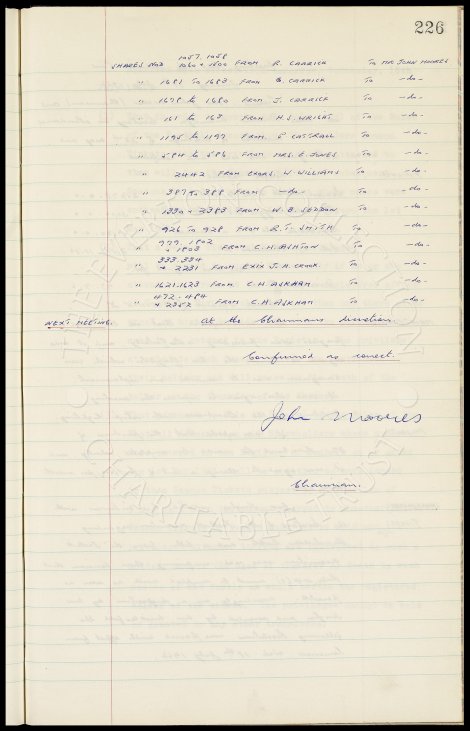 226
1057. 1058
SHARES NOS 1060 & 1500 FROM R. CARRICK TO MR JOHN MOORES
" 1681 TO 1683 FROM B. CARRICK TO -do-
" 1678 to 1680 FROM J. CARRICK TO -do-
" 161 to 163 FROM H.S. WRIGHT TO -do-
" 1195 to 1197 FROM E CATTRALL TO -do-
" 584 to 586 FROM MRS. E. JONES TO -do-
" 2442 FROM W. WILLIAMS TO -do-
" 387 & 388 FROM -do- TO -do-
" 1330 & 2383 FROM W. B. SEDDON TO -do-
" 926 to 928. FROM R.T. SMITH TO -do-
999. 1802
" & 1803 FROM C. H. ASHTON TO -do-
333.334
" & 2231 FROM J. H. CROOK TO -do-
" 1621.1623 FROM C. H. ASKHAM TO -do-
472 - 484
" & 2352 FROM C. H. ASKHAM TO -do-
NEXT MEETING. at the Chairmans direction.
Confirmed as correct.
John Moores
Chairman.
THE EFC COLLECTION
CHARITABLE TRUST